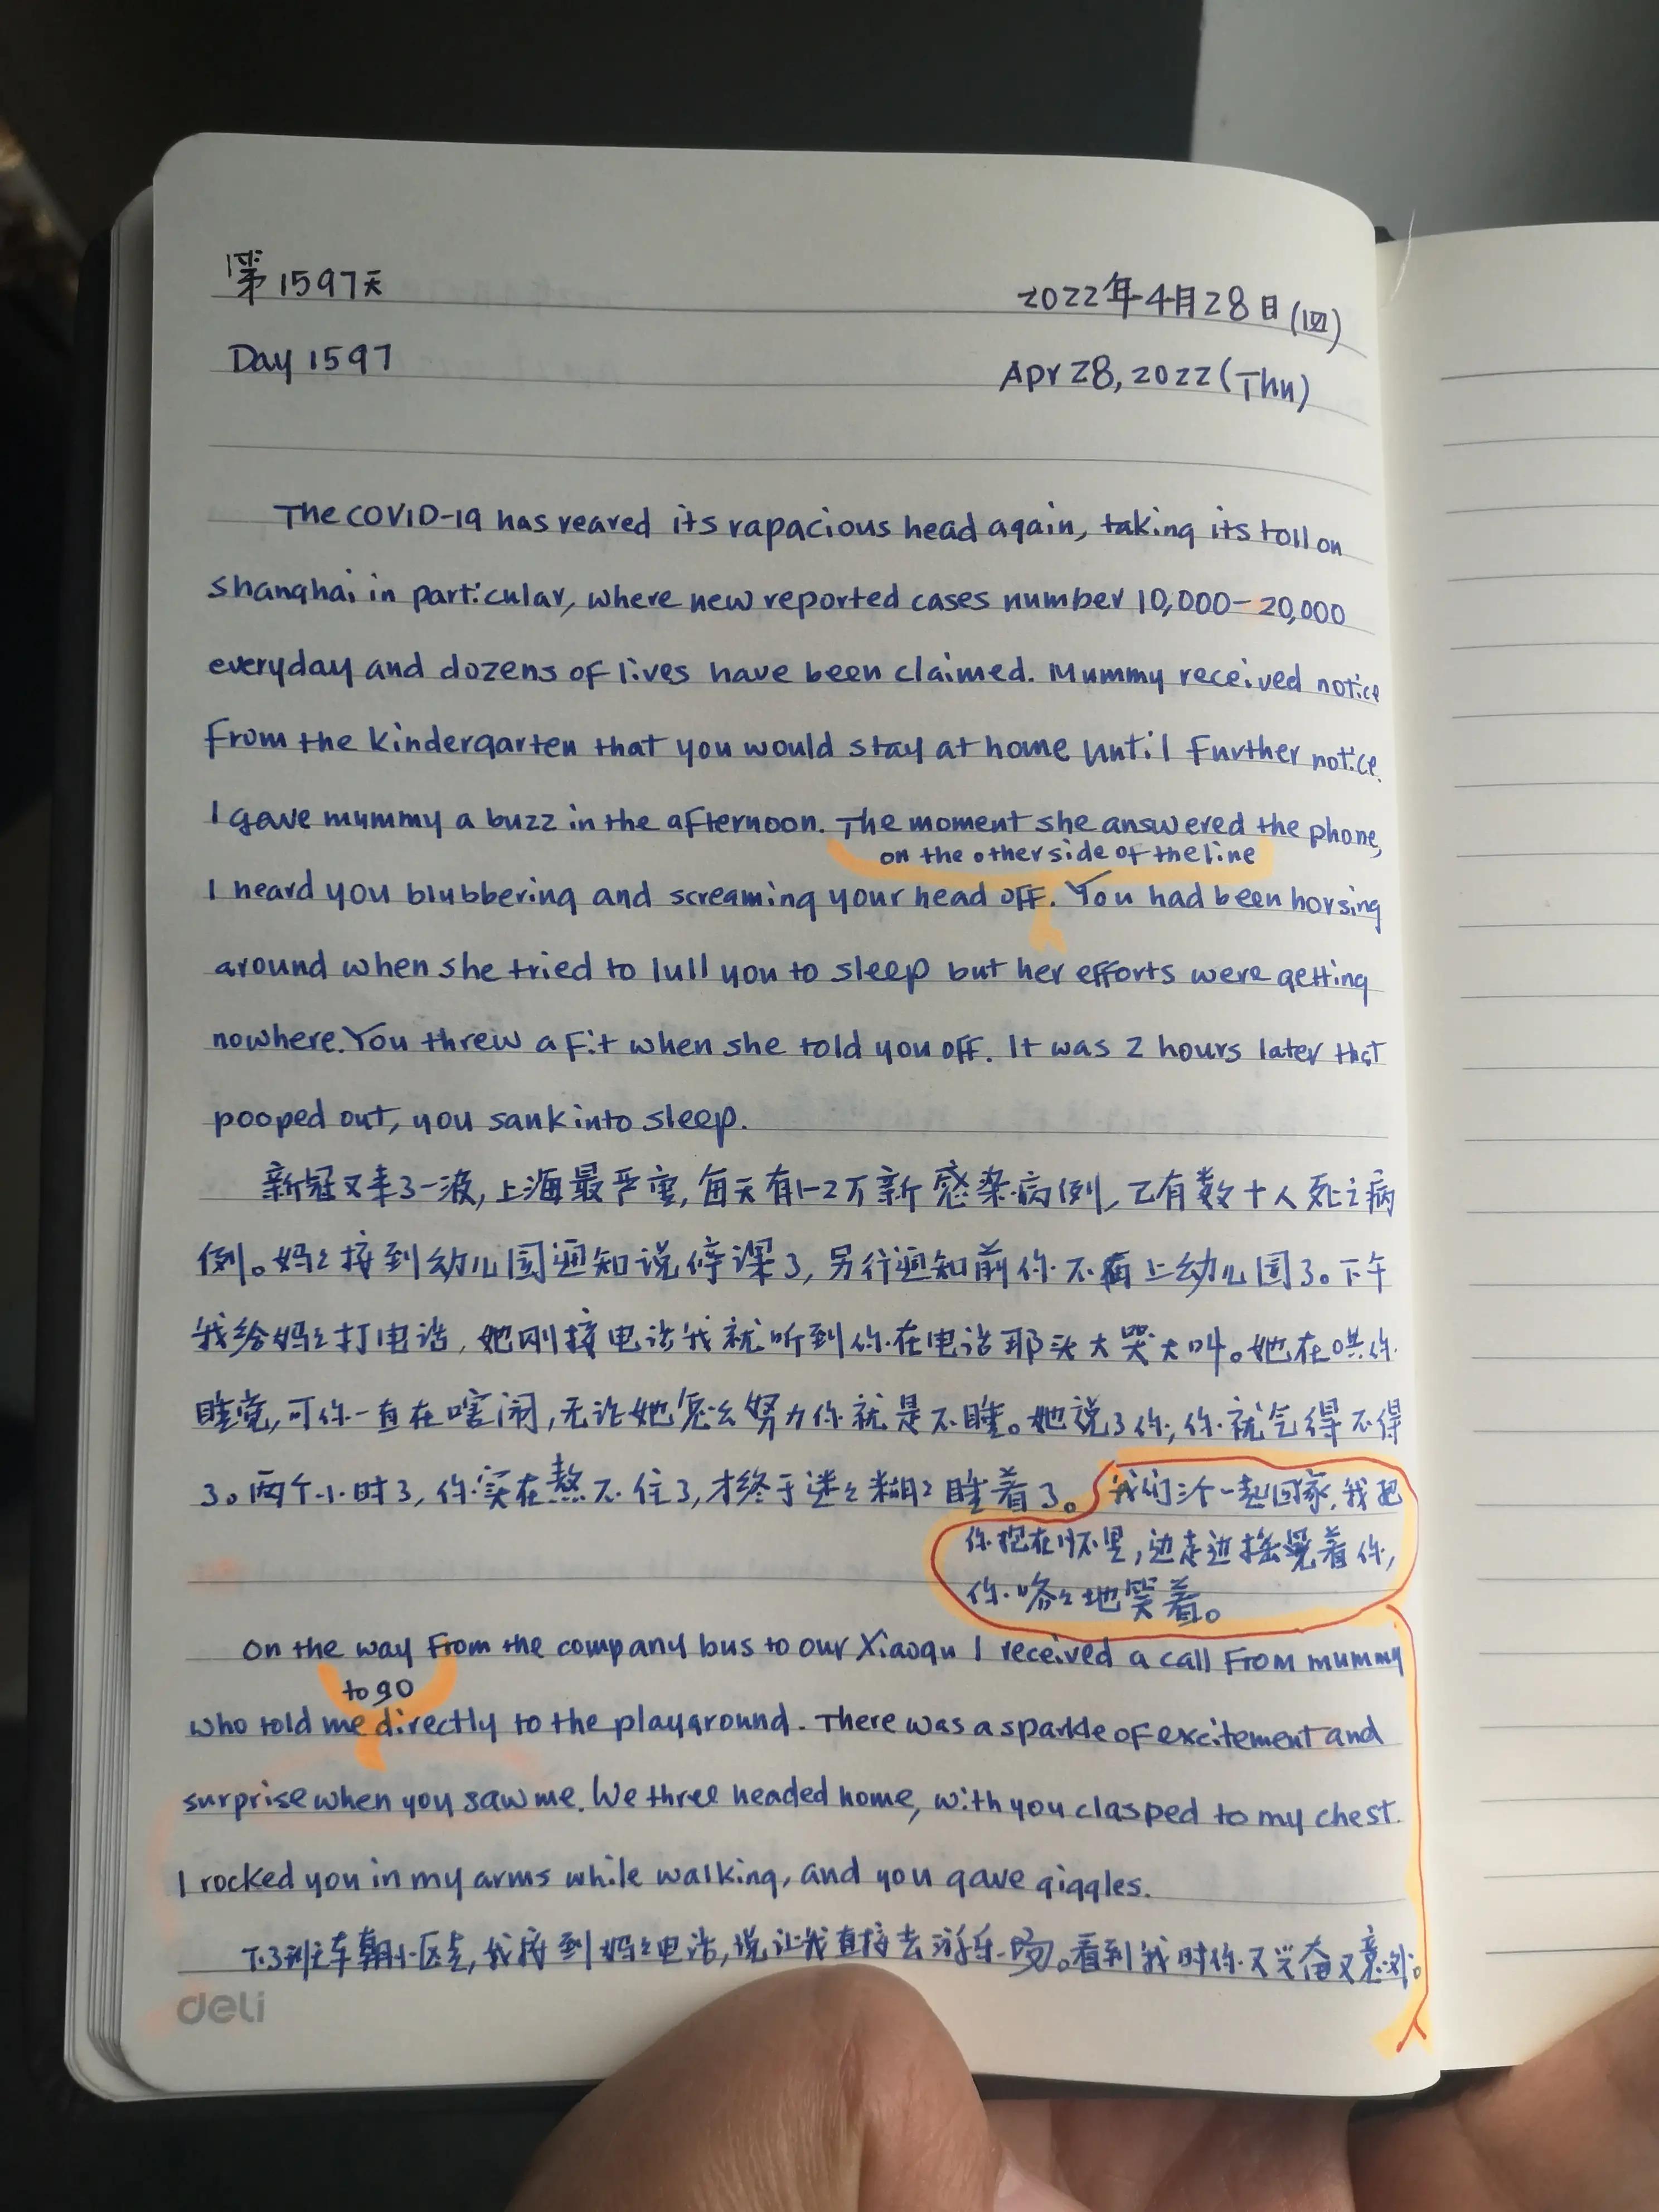 第1597天
2022年4月28日(四)
Day 1597
Apr 28, 2022 (Thu)
The COVID-19 has reared its rapacious head again, taking its toll on
shanghai in particular, where new reported cases number 10,000-20,000
everyday and dozens of lives have been claimed. Mummy received notice
from the kindergarten that you would stay at home until further notice.
I gave mummy a buzz in the afternoon. The moment she answered the phone,
on the other side of the line
I heard you blubbering and screaming your head off. You had been horsing
around when she tried to lull you to sleep but her efforts were getting
nowhere. You threw a fit when she told you off. It was 2 hours later that
pooped out, you sank into sleep.
新冠又来了一波,上海最严重,每天有1-2万新感染病例,已有数十人死亡病
例。妈々接到幼儿园通知说停课了,另行通知前你不用上幼儿园了。下午
我给妈々打电话,她刚接电话我就听到你在电话那头大哭大叫。她在哄你
睡觉,可你一直在瞎闹,无论她怎么努力你就是不睡。她说了你,你就气得不得
了。两个小时了,你实在熬不住了,才终于迷々糊々睡着了。我们三个一起回家,我把
你抱在怀里,边走边摇晃着你,
你咯々地笑着。
On the way from the company bus to our Xiaoqu I received a call from mummy
to go
who told me directly to the playground. There was a sparkle of excitement and
surprise when you saw me. We three headed home, with you clasped to my chest.
I rocked you in my arms while walking, and you gave giggles.
下了班车朝小区走,我接到妈々电话,说让我直接去游乐场。看到我时你又兴奋又意外。
deli